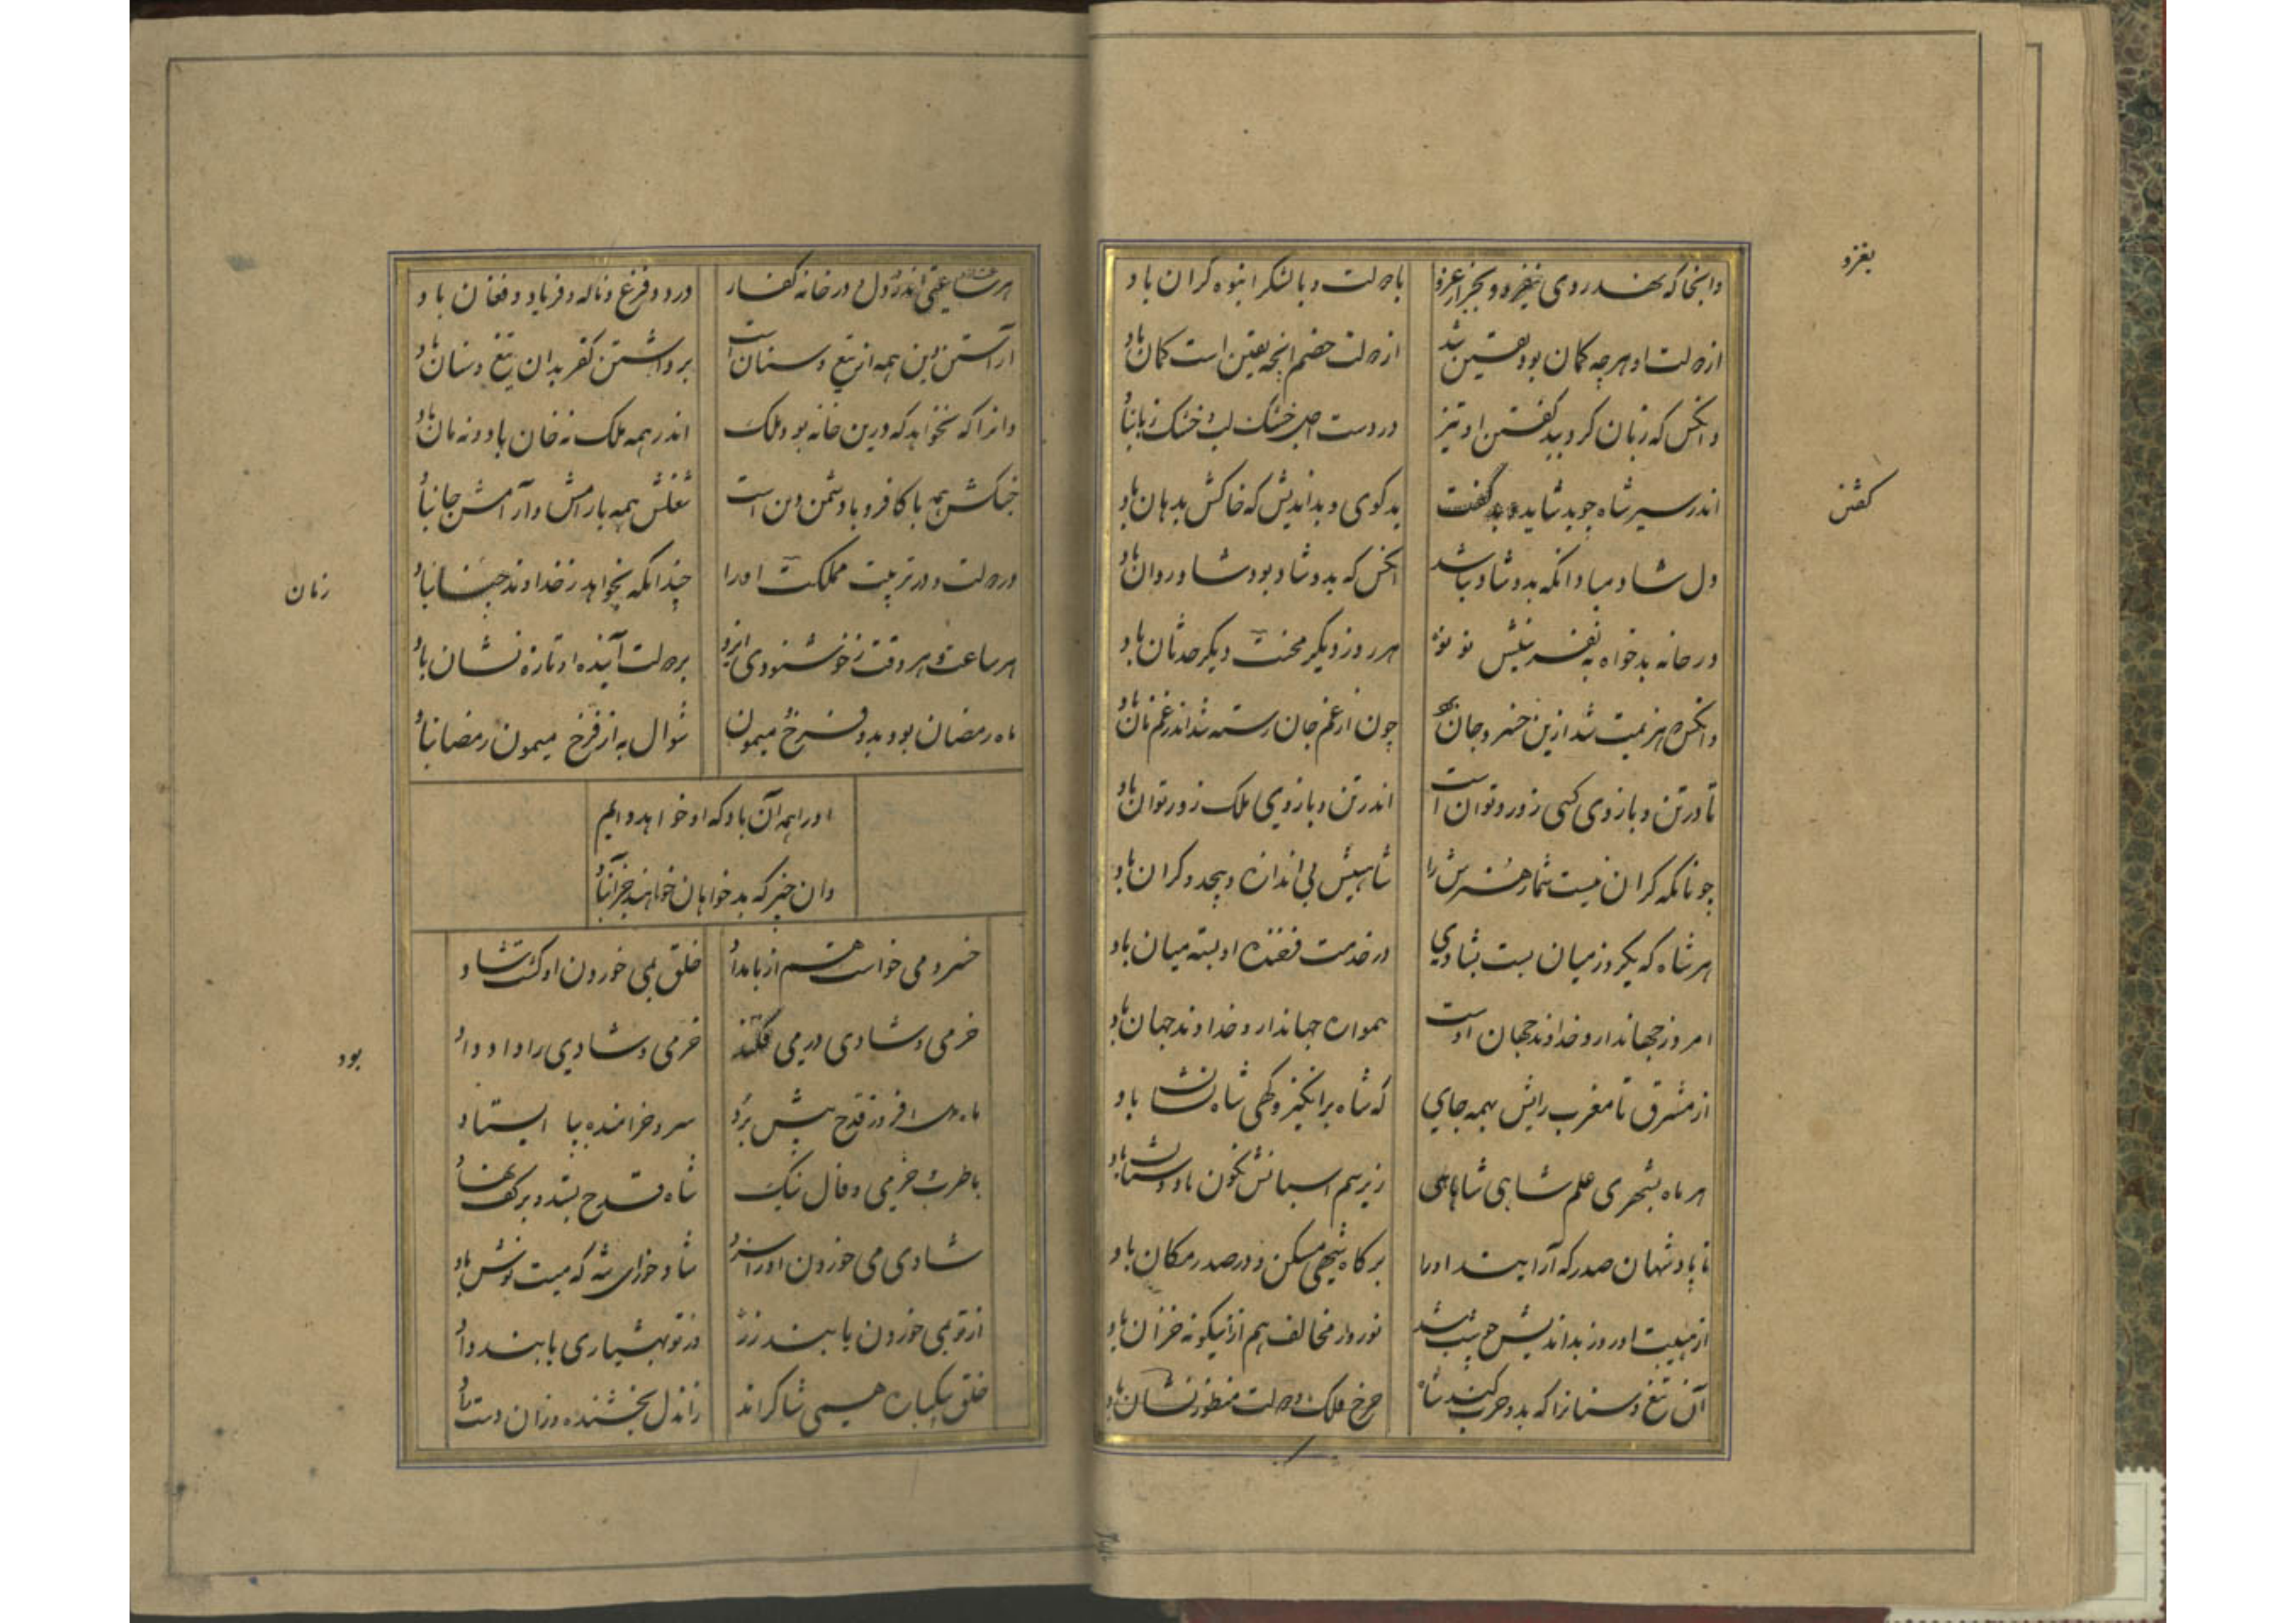 وانجا که نهند روی بغزو و بجز از غزو
با دولت و با لشکر انبوه کران باد
از دولت او هر چه کمان بود یقین شد
از دولت خصم انچه یقین است کمان باد
وانکس که زبان کرد ببد گفتن او تیز
در دست اجل خشک لب و خشک زبان باد
اندر سیر شاه چو بد شاید گفت
بدکوی و بداندیش که خاکش بدهان باد
دل شاد مبادانکه بدو شاد نباشد
انکس که بدو شاد بود شاد روان باد
در خانه بدخواه به نفرینش نو نو
هر روز دیکر محنت و دیکر حدثان باد
وانکس که هزیمت شد ازین خسرو و جان برد
چون از غم جان رسته شد اندر غم نان باد
تا در تن و بازوی کسی زور و توان است
اندر تن و بازوی ملک زور و توان باد
چونانکه کران نیست شمار هنرش را
شاهیش بی اندازه و بیحد و کران باد
هر شاه که یکروز میان بست بشادی
در خدمت فرخنده او بسته میان باد
امروز جهاندار و خداوند جهان اوست
همواره جهاندار و خداوند جهان باد
از مشرق تا مغرب رایش بهمه جای
که شاه برانکیز و کهی شاه نشان باد
هر ماه بشهری علم شاهی شاهی
زیر سم اسبانش نکون باد و ستان باد
تا پادشهان صدرکه آرایند او را
بر کاه شهی مسکن و در صدر مکان باد
از هیبت او روز بداندیش چو شب شد
نوروز مخالف هم ازانیکونه خزان باد
آن تیغ و سنانرا که بدو حرب کند شاه
چرخ و فلک و دولت منظور نشان باد
بغزو
کفتن
هر ساعتی اندر دل و در خانه کفار
درد و فزع و ناله و فریاد و فغان باد
آراستن دین همه از تیغ و سنان است
برداشتن کفر بدان تیغ و سنان باد
وانرا که نخواهد که درین خانه بود ملک
اندر همه ملک نه خان باد و نه مان باد
جنکش همه با کافر و با دشمن دین است
شغلش همه با رامش و آرامش جان باد
در دولت و در تربیت مملکت او را
چندانکه بخواهد ز خداوند چنان باد
هر ساعت و هر وقت ز خوشنودی ایزد
بر دولت آینده او تازه نشان باد
ماه رمضان بود بدو فرخ و میمون
شوال به از فرخ و میمون رمضان باد
او را همه آن باد که او خواهد دایم
وان چیز که بدخواهان خواهند جز آن باد
خسرو می خواست هم از بامداد
خلق بمی خوردن او کشت شاد
خرمی و شادی در می فکند
خرمی و شادی را داد داد
ماه افروز قدح پیش برد
سرو خرامنده بپا ایستاد
با طرب و خرمی و فال نیک
شاه قدح بستد و بر کف نهاد
شادی می خوردن او را سزد
شاد خور ای شه که میت نوش باد
از تو بمی خوردن یابند زر
وز تو بهشیاری یابند داد
خلق بیکباره همی شاکراند
زاندل بخشنده و زان دست راد
زنان
بود